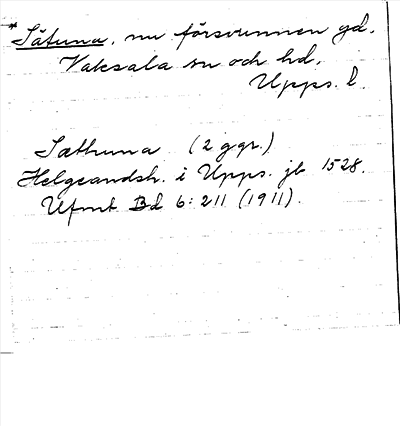 *Sätuna, nu försvunnen gd.
Vaksala sn och hd.
Upps. l.
Sæthuna (2 ggr.)
Helgeandsh. i Upps. jb 1528.
Ufmt Bd 6:211 (1911).